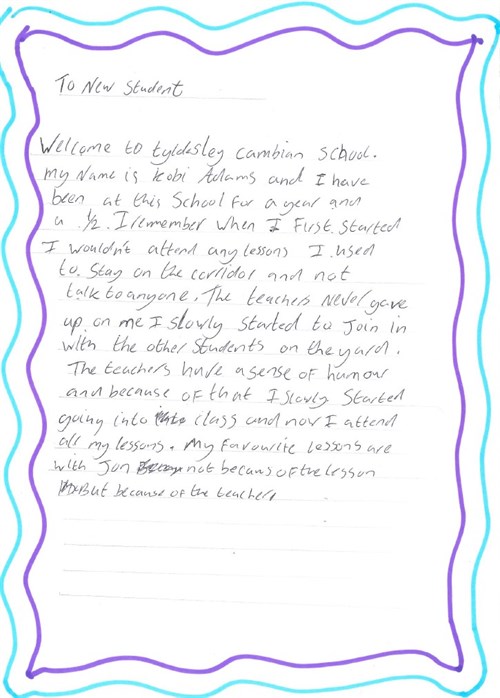 To New Student
Welcome to tyldesley Cambian school.
my Name is Kobi Adams and I have
been at this School for a year and
a 1/2. I remember when I First Started
I wouldn't attend any lessons I used
to. Stay on the corridor and not
talk to anyone. The teachers Never gave
up on me I slowly started to Join in
with the other students on the yard.
The teachers have a sense of humour
and because of that I slowly started
going into class and now I attend
all my lessons. My Favourite Lessons are
with Jon not becaus of the lesson
But because of the teachers